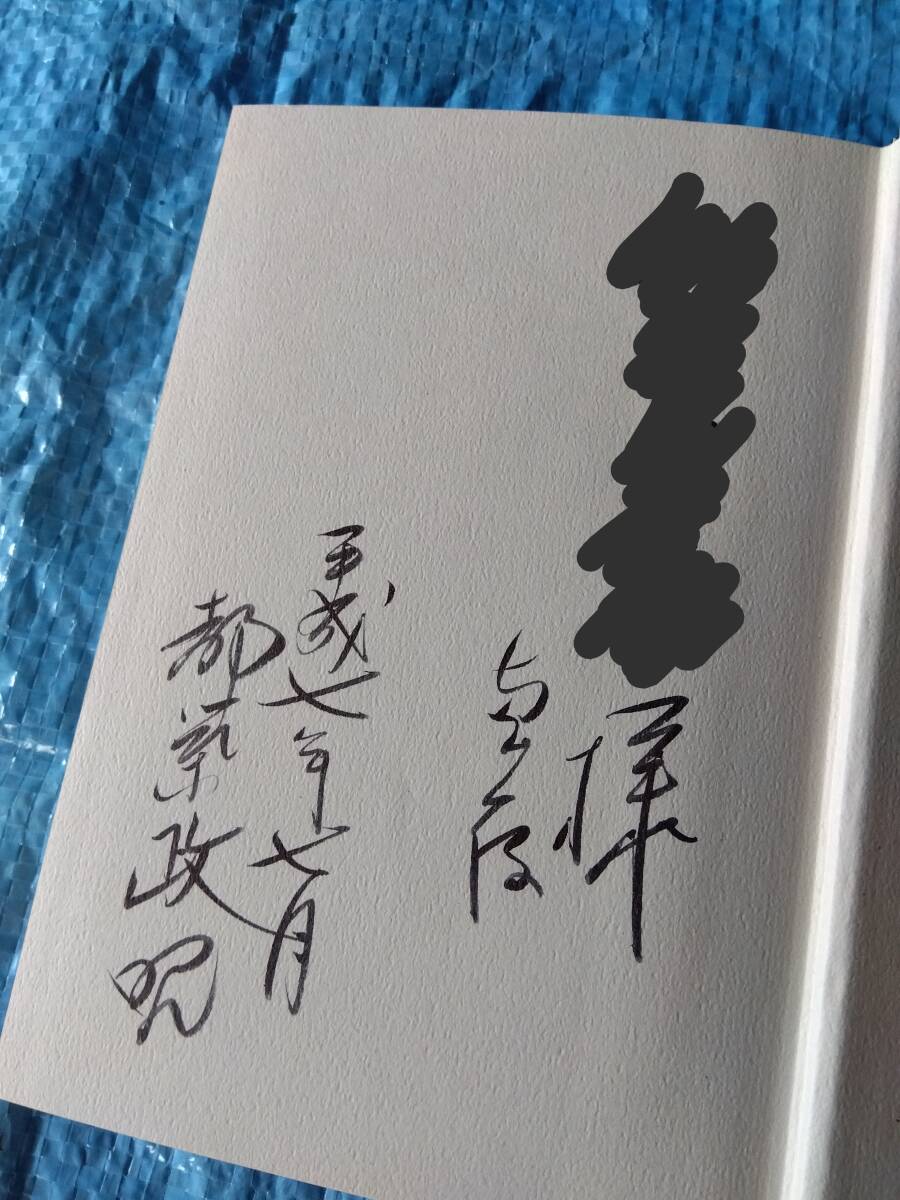 様
平成七年七月
都築政昭